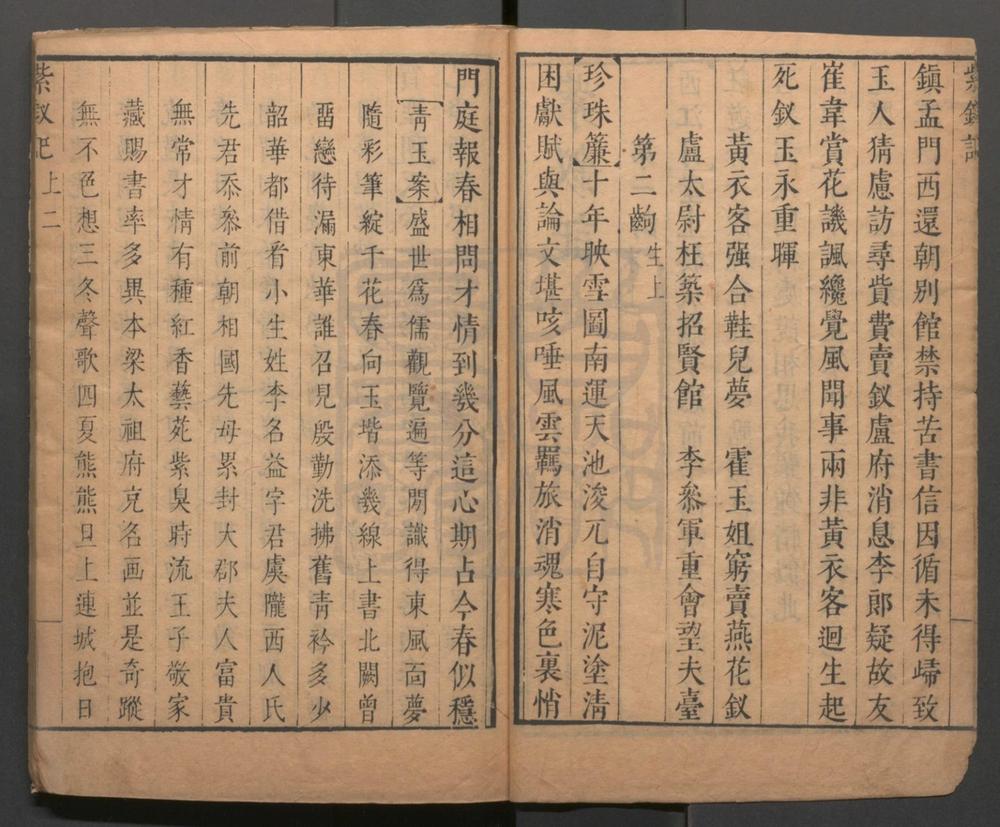 紫釵記
鎮孟門西還朝別館禁持苦書信因循未得歸致
玉人猜慮訪尋貲費賣釵盧府消息李郎疑故友
崔韋賞花譏諷纔覺風聞事兩非黃衣客迴生起
死釵玉永重暉
黃衣客强合鞋兒夢 霍玉姐窮賣燕花釵
盧太尉枉築招賢館 李叅軍重會望夫臺
第二齣 生上
【珍珠簾】十年映雪圖南運天池浚兀自守泥塗清
困獻賦與論文堪咳唾風雲羈旅消魂寒色裏悄
門庭報春相問才情到幾分這心期占今春似穩
【青玉案】盛世爲儒觀覽遍等閒識得東風面夢
隨彩筆綻千花春向玉堦添幾線上書北闕曾
畱戀待漏東華誰召見殷勤洗拂舊青衿多少
韶華都借看小生姓李名益字君虞隴西人氏
先君忝叅前朝相國先母累封大郡夫人富貴
無常才情有種紅香藝苑紫臭時流王子敬家
藏賜書率多異本梁太祖府充名画並是奇蹤
無不色想三冬聲歌四夏熊熊旦上連城抱日
紫釵記 上 二